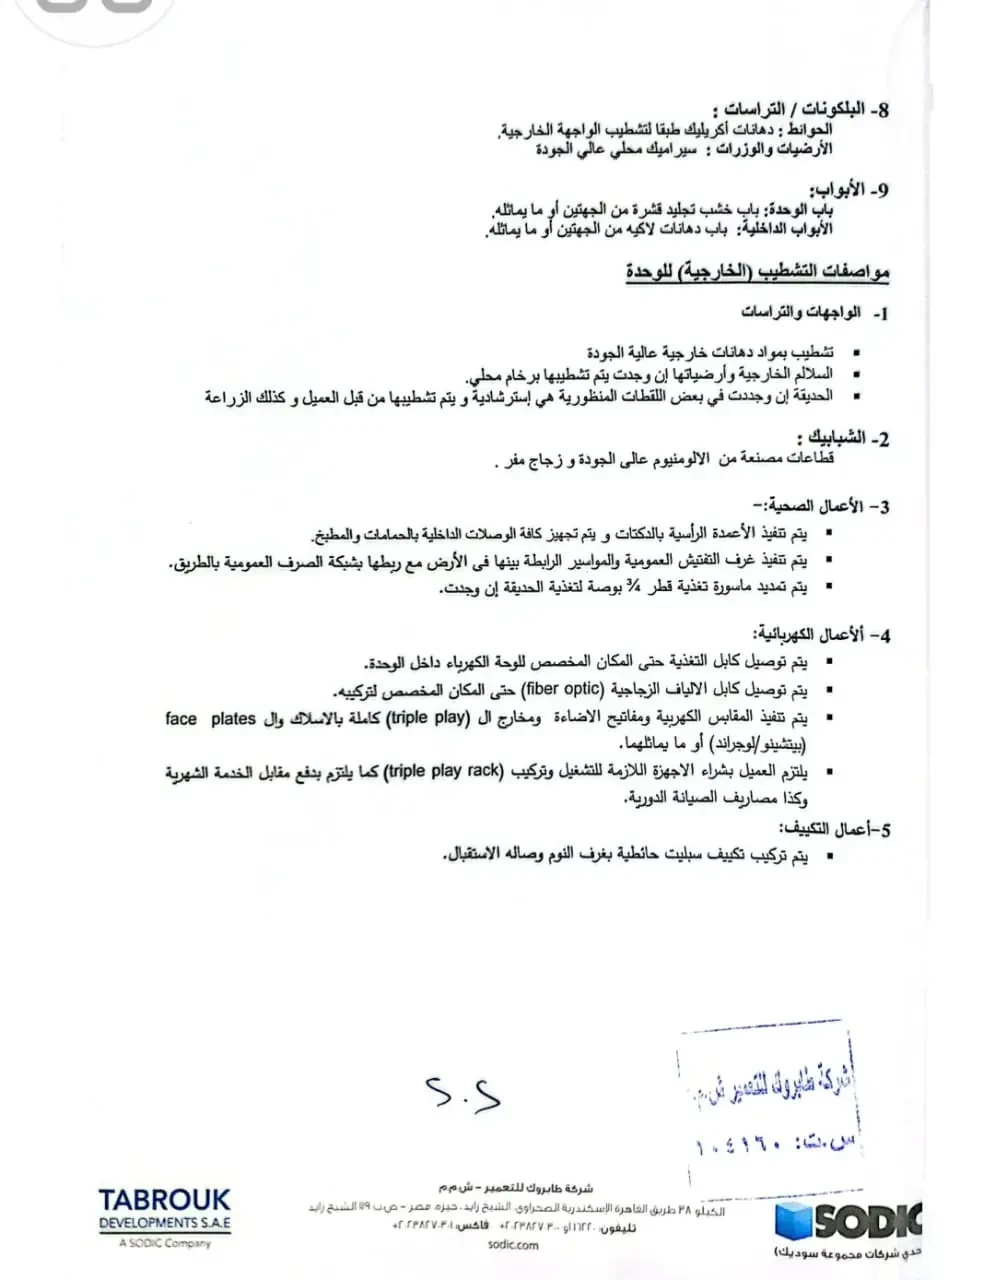 8- البلكونات / التراسات :
الحوائط : دهانات أكريليك طبقا لتشطيب الواجهة الخارجية.
الأرضيات والوزرات : سيراميك محلي عالي الجودة
9- الأبواب:
باب الوحدة: باب خشب تجليد قشرة من الجهتين أو ما يماثله.
الأبواب الداخلية: باب دهانات لاكيه من الجهتين أو ما يماثله.
مواصفات التشطيب (الخارجية) للوحدة
1- الواجهات والتراسات
▪ تشطيب بمواد دهانات خارجية عالية الجودة
▪ السلالم الخارجية وأرضياتها إن وجدت يتم تشطيبها برخام محلي.
▪ الحديقة إن وجددت في بعض اللقطات المنظورية هي إسترشادية و يتم تشطيبها من قبل العميل و كذلك الزراعة
2- الشبابيك :
قطاعات مصنعة من الالومنيوم عالى الجودة و زجاج مفر .
3- الأعمال الصحية:-
▪ يتم تنفيذ الأعمدة الرأسية بالدكتات و يتم تجهيز كافة الوصلات الداخلية بالحمامات والمطبخ.
▪ يتم تنفيذ غرف التفتيش العمومية والمواسير الرابطة بينها فى الأرض مع ربطها بشبكة الصرف العمومية بالطريق.
▪ يتم تمديد ماسورة تغذية قطر ¾ بوصة لتغذية الحديقة إن وجدت.
4- ألأعمال الكهربائية:
▪ يتم توصيل كابل التغذية حتى المكان المخصص للوحة الكهرباء داخل الوحدة.
▪ يتم توصيل كابل الالياف الزجاجية (fiber optic) حتى المكان المخصص لتركيبه.
▪ يتم تنفيذ المقابس الكهربية ومفاتيح الاضاءة ومخارج ال (triple play) كاملة بالاسلاك وال face plates
(بيتشينو/لوجراند) أو ما يماثلهما.
▪ يلتزم العميل بشراء الاجهزة اللازمة للتشغيل وتركيب (triple play rack) كما يلتزم بدفع مقابل الخدمة الشهرية
وكذا مصاريف الصيانة الدورية.
5-أعمال التكييف:
▪ يتم تركيب تكييف سبليت حائطية بغرف النوم وصاله الاستقبال.
S.S
شركة طابروك للتعمير ش.م.م
س.ت: ١٠٤٩٦٠
TABROUK
DEVELOPMENTS S.A.E
A SODIC Company
شركة طابروك للتعمير - ش.م.م
الكيلو ٣٨ طريق القاهرة الإسكندرية الصحراوي، الشيخ زايد، جيزه، مصر - ص.ب ١١٩ الشيخ زايد
تليفون: ١٦٢٢٠ او ٢٠٢٣٨٢٧٠٣٠٠+ فاكس: ٢٠٢٣٨٢٧٠٣٠١+
sodic.com
SODIC
حدي شركات مجموعة سوديك)